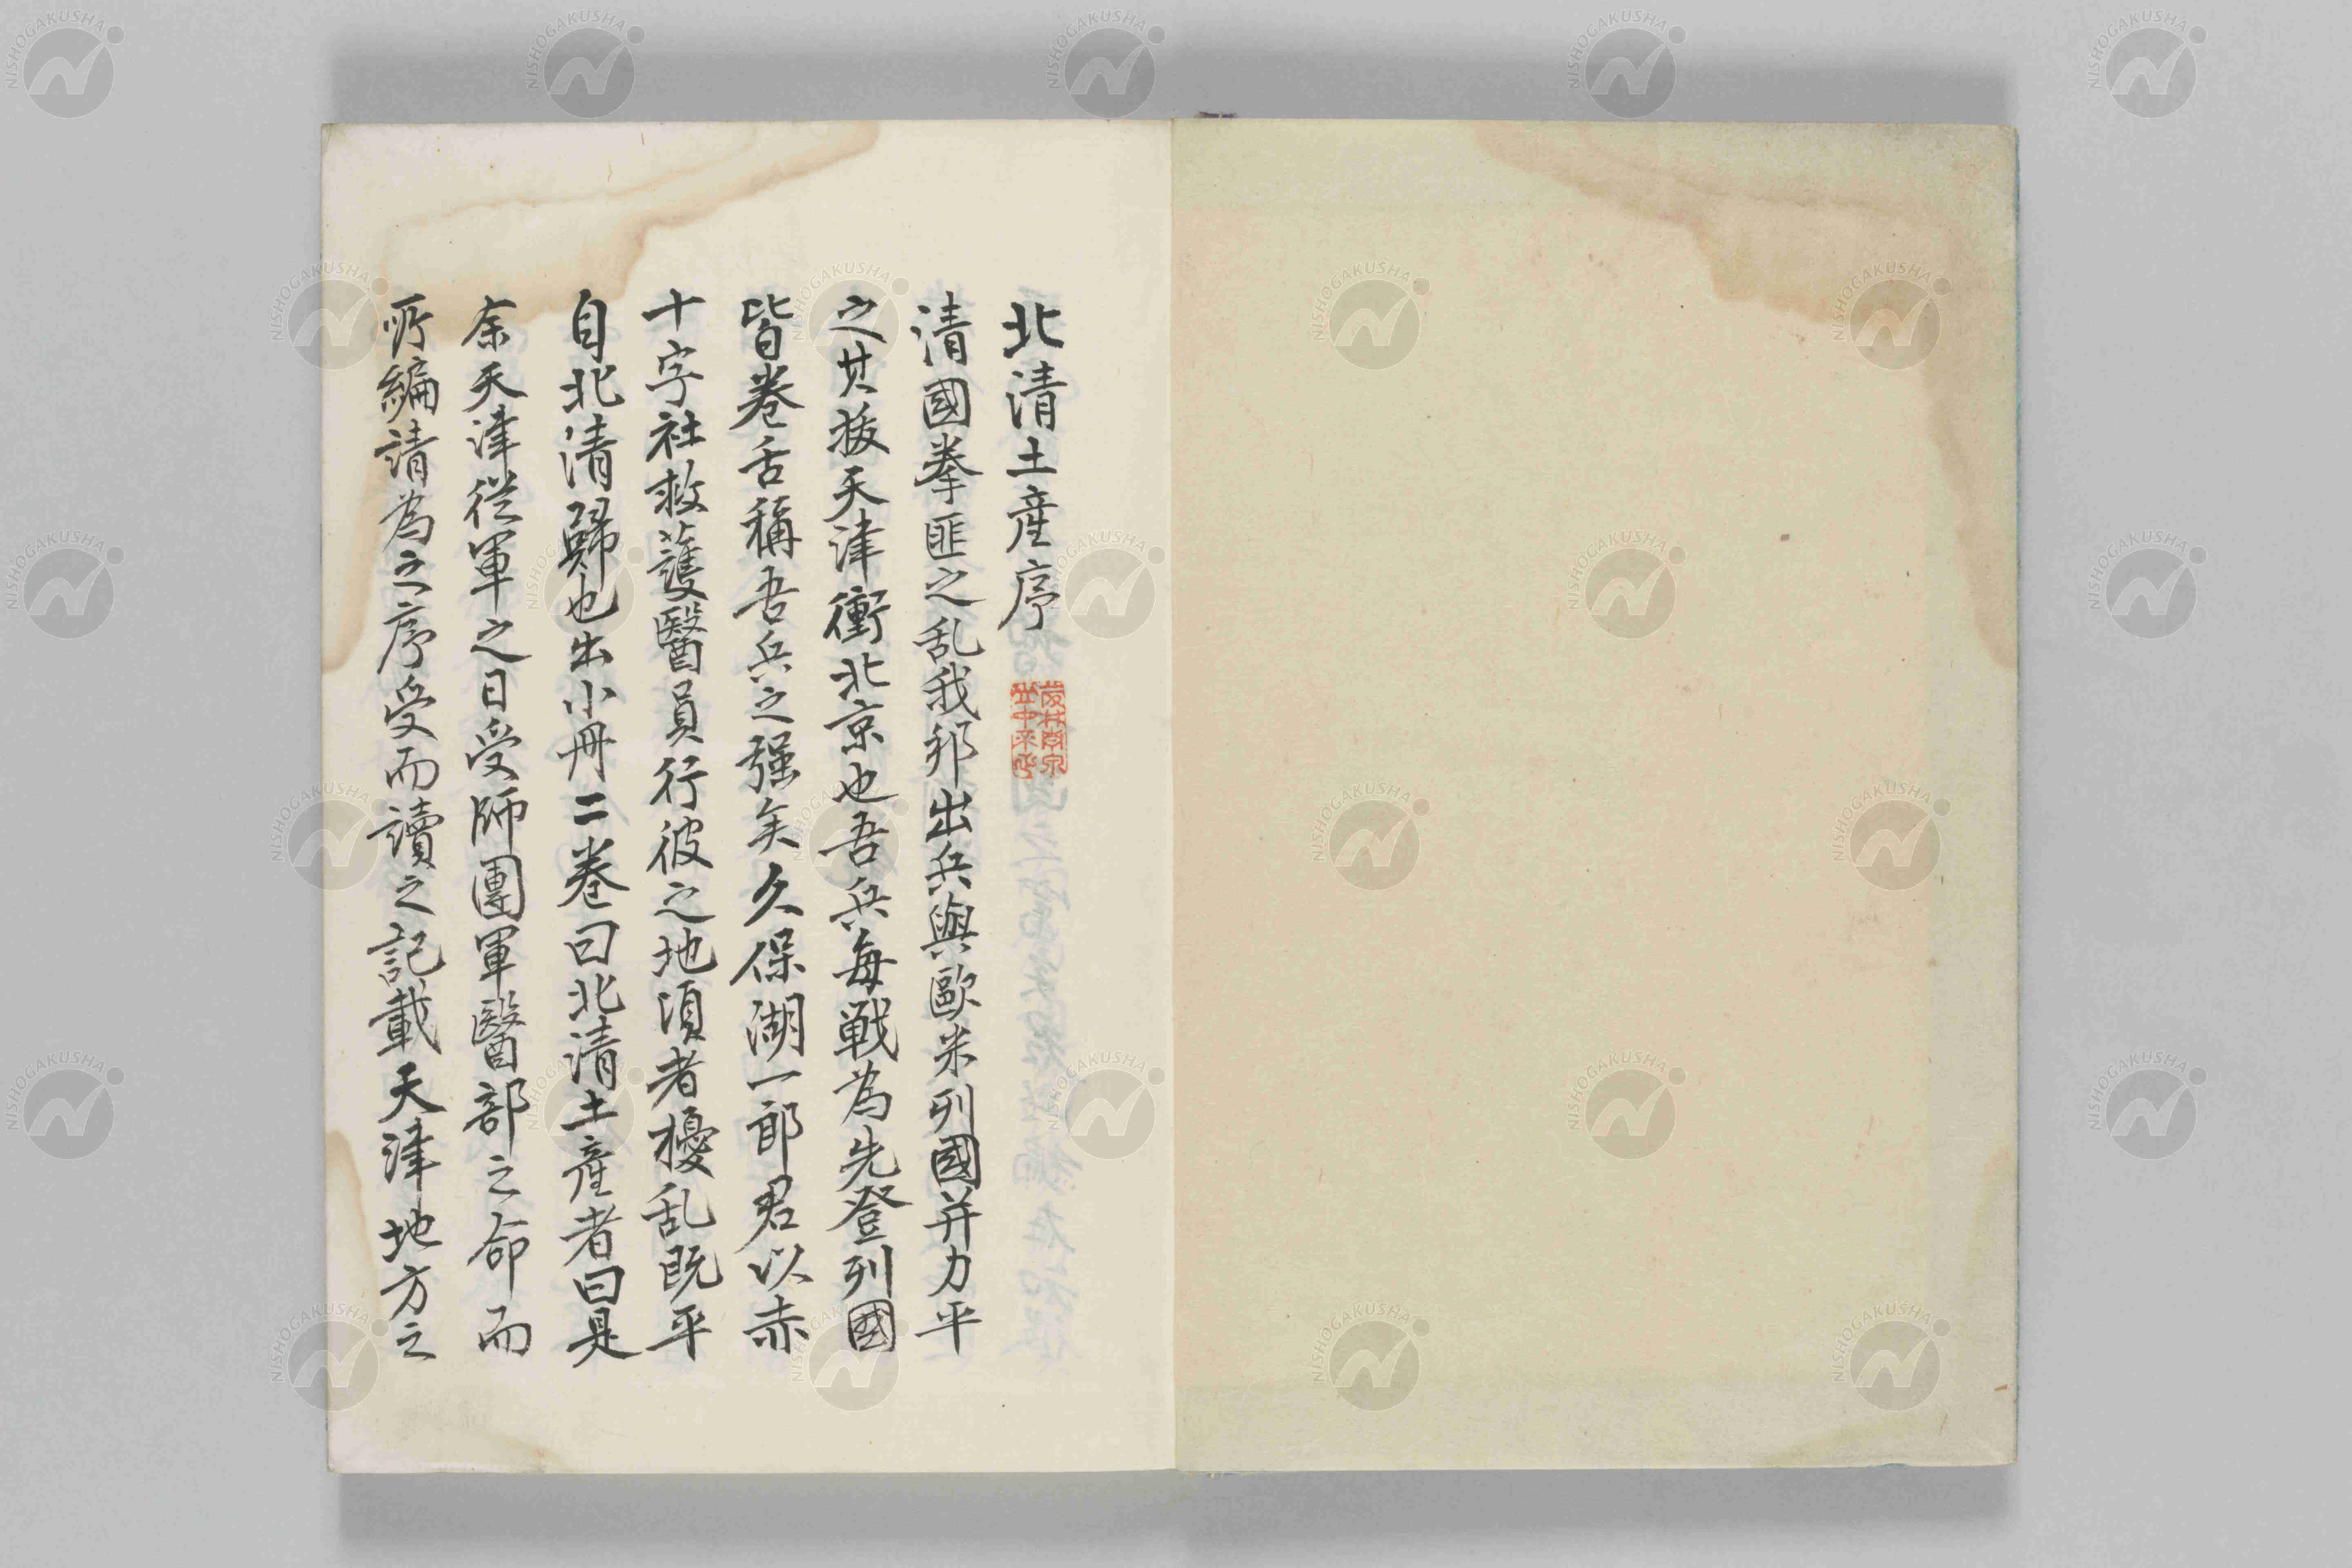 北清土産序
清國拳匪之乱我邦出兵與歐米列國并力平
之其拔天津衝北京也吾兵每戦為先登列國
皆卷舌稱吾兵之强矣久保湖一郎君以赤
十字社救護醫員行彼之地須者擾乱既平
自北清歸也出小冊二卷曰北清土産者曰是
余天津從軍之日受師團軍醫部之命而
所編請為之序受而讀之記載天津地方之
NISHOGAKUSHA